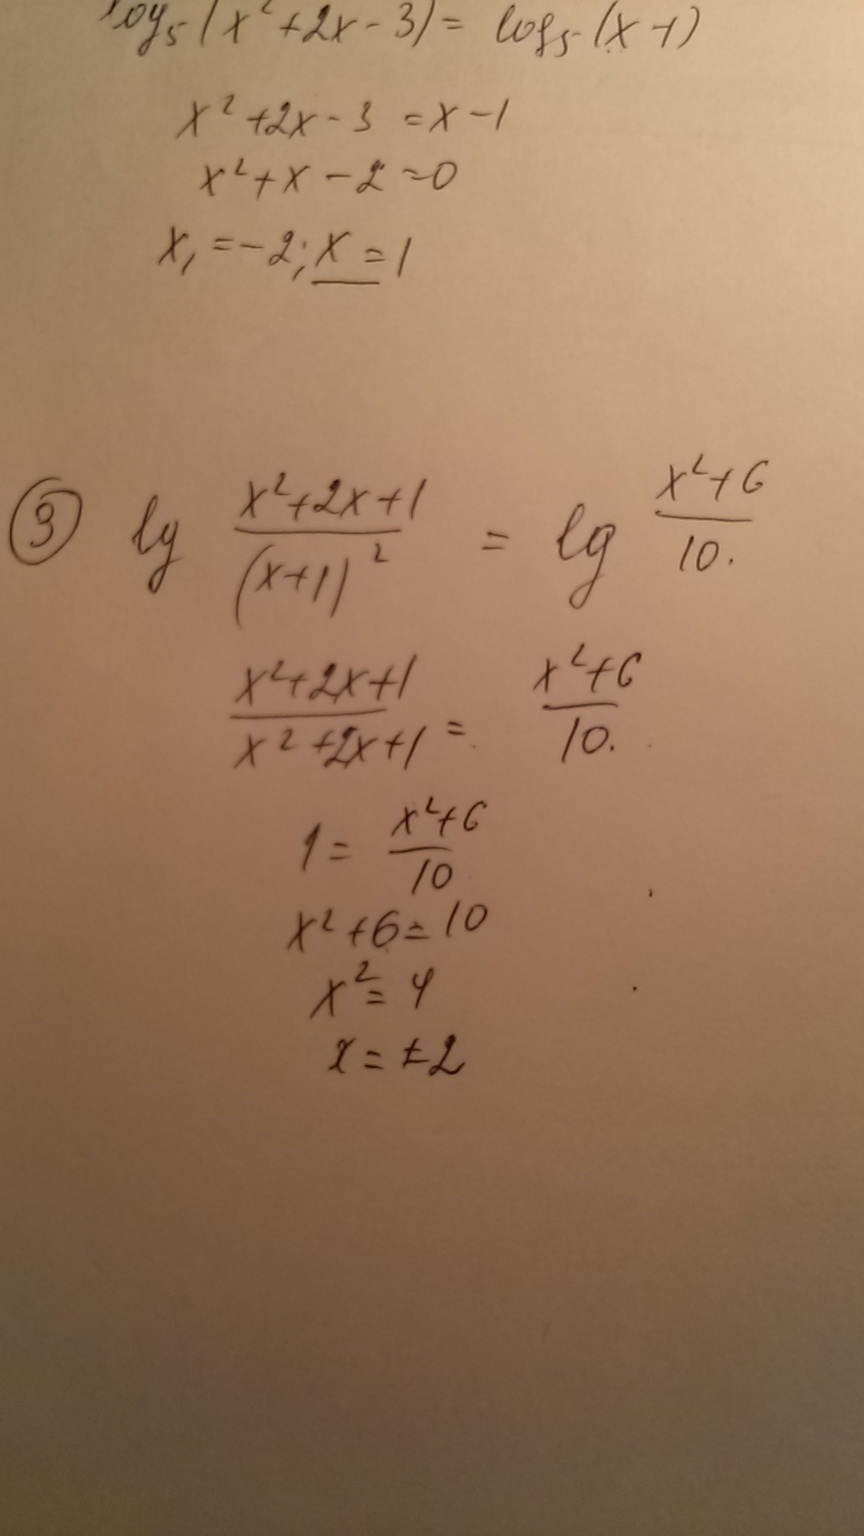 log₅(x²+2x-3)= log₅(x-1)
x²+2x-3 =x-1
x²+x-2=0
x₁=-2; x=1
③ lg (x²+2x+1)/(x+1)² = lg (x²+6)/10.
(x²+2x+1)/(x²+2x+1) = (x²+6)/10.
1= (x²+6)/10
x²+6=10
x²=4
x=±2